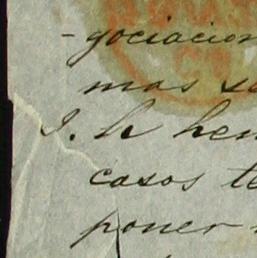 -gociacion
mas
I. le hem
casos te
poner